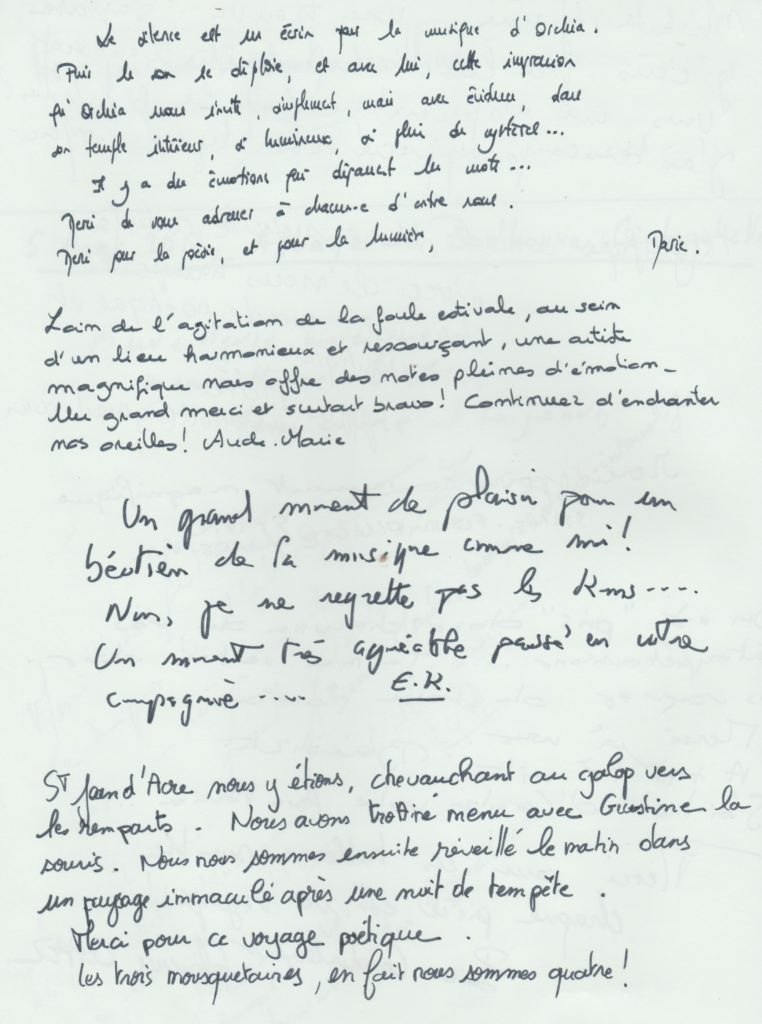 Le silence est un écrin pour la musique d'Orchia.
Puis le son se déploie, et avec lui, cette impression
qu'Orchia nous invite, simplement, mais avec évidence, dans
son temple intérieur, si lumineux, si plein de mystères...
Il y a des émotions qui dépassent les mots...
Merci de vous adresser à chacun-e d'entre nous.
Merci pour la poésie, et pour la lumière,
Marie.
Loin de l'agitation de la foule estivale, au sein
d'un lieu harmonieux et ressourçant, une artiste
magnifique nous offre des notes pleines d'émotion_
Un grand merci et surtout bravo! Continuez d'enchanter
nos oreilles! Aude-Marie
Un grand moment de plaisir pour un
béotien de la musique comme moi!
Non, je ne regrette pas les Kms....
Un moment très agréable passé en votre
compagnie ....
E.K.
ST Jean d'Acre nous y étions, chevauchant au galop vers
les remparts. Nous avons trottiné menu avec la
souris. Nous nous sommes ensuite réveillé le matin dans
un paysage immaculé après une nuit de tempête.
Merci pour ce voyage poétique.
les trois mousquetaires, en fait nous sommes quatre!